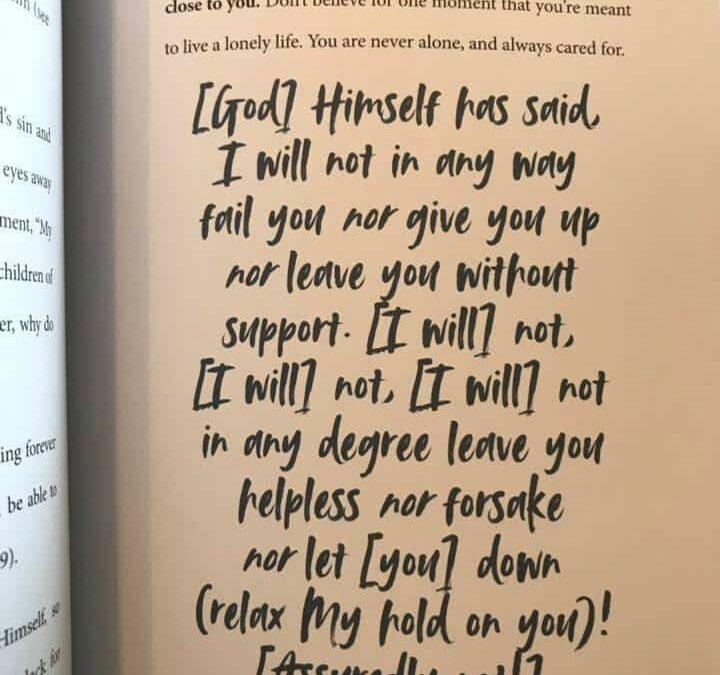 n (see
's sin and
eyes away
ment, "My
children of
er, why do
ing forever
be able to
9).
Himself, so
lack for
close to you. Don't believe for one moment that you're meant
to live a lonely life. You are never alone, and always cared for.
[God] Himself has said,
I will not in any way
fail you nor give you up
nor leave you without
support. [I will] not,
[I will] not, [I will] not
in any degree leave you
helpless nor forsake
nor let [you] down
(relax My hold on you)!
[Assuredly not!]